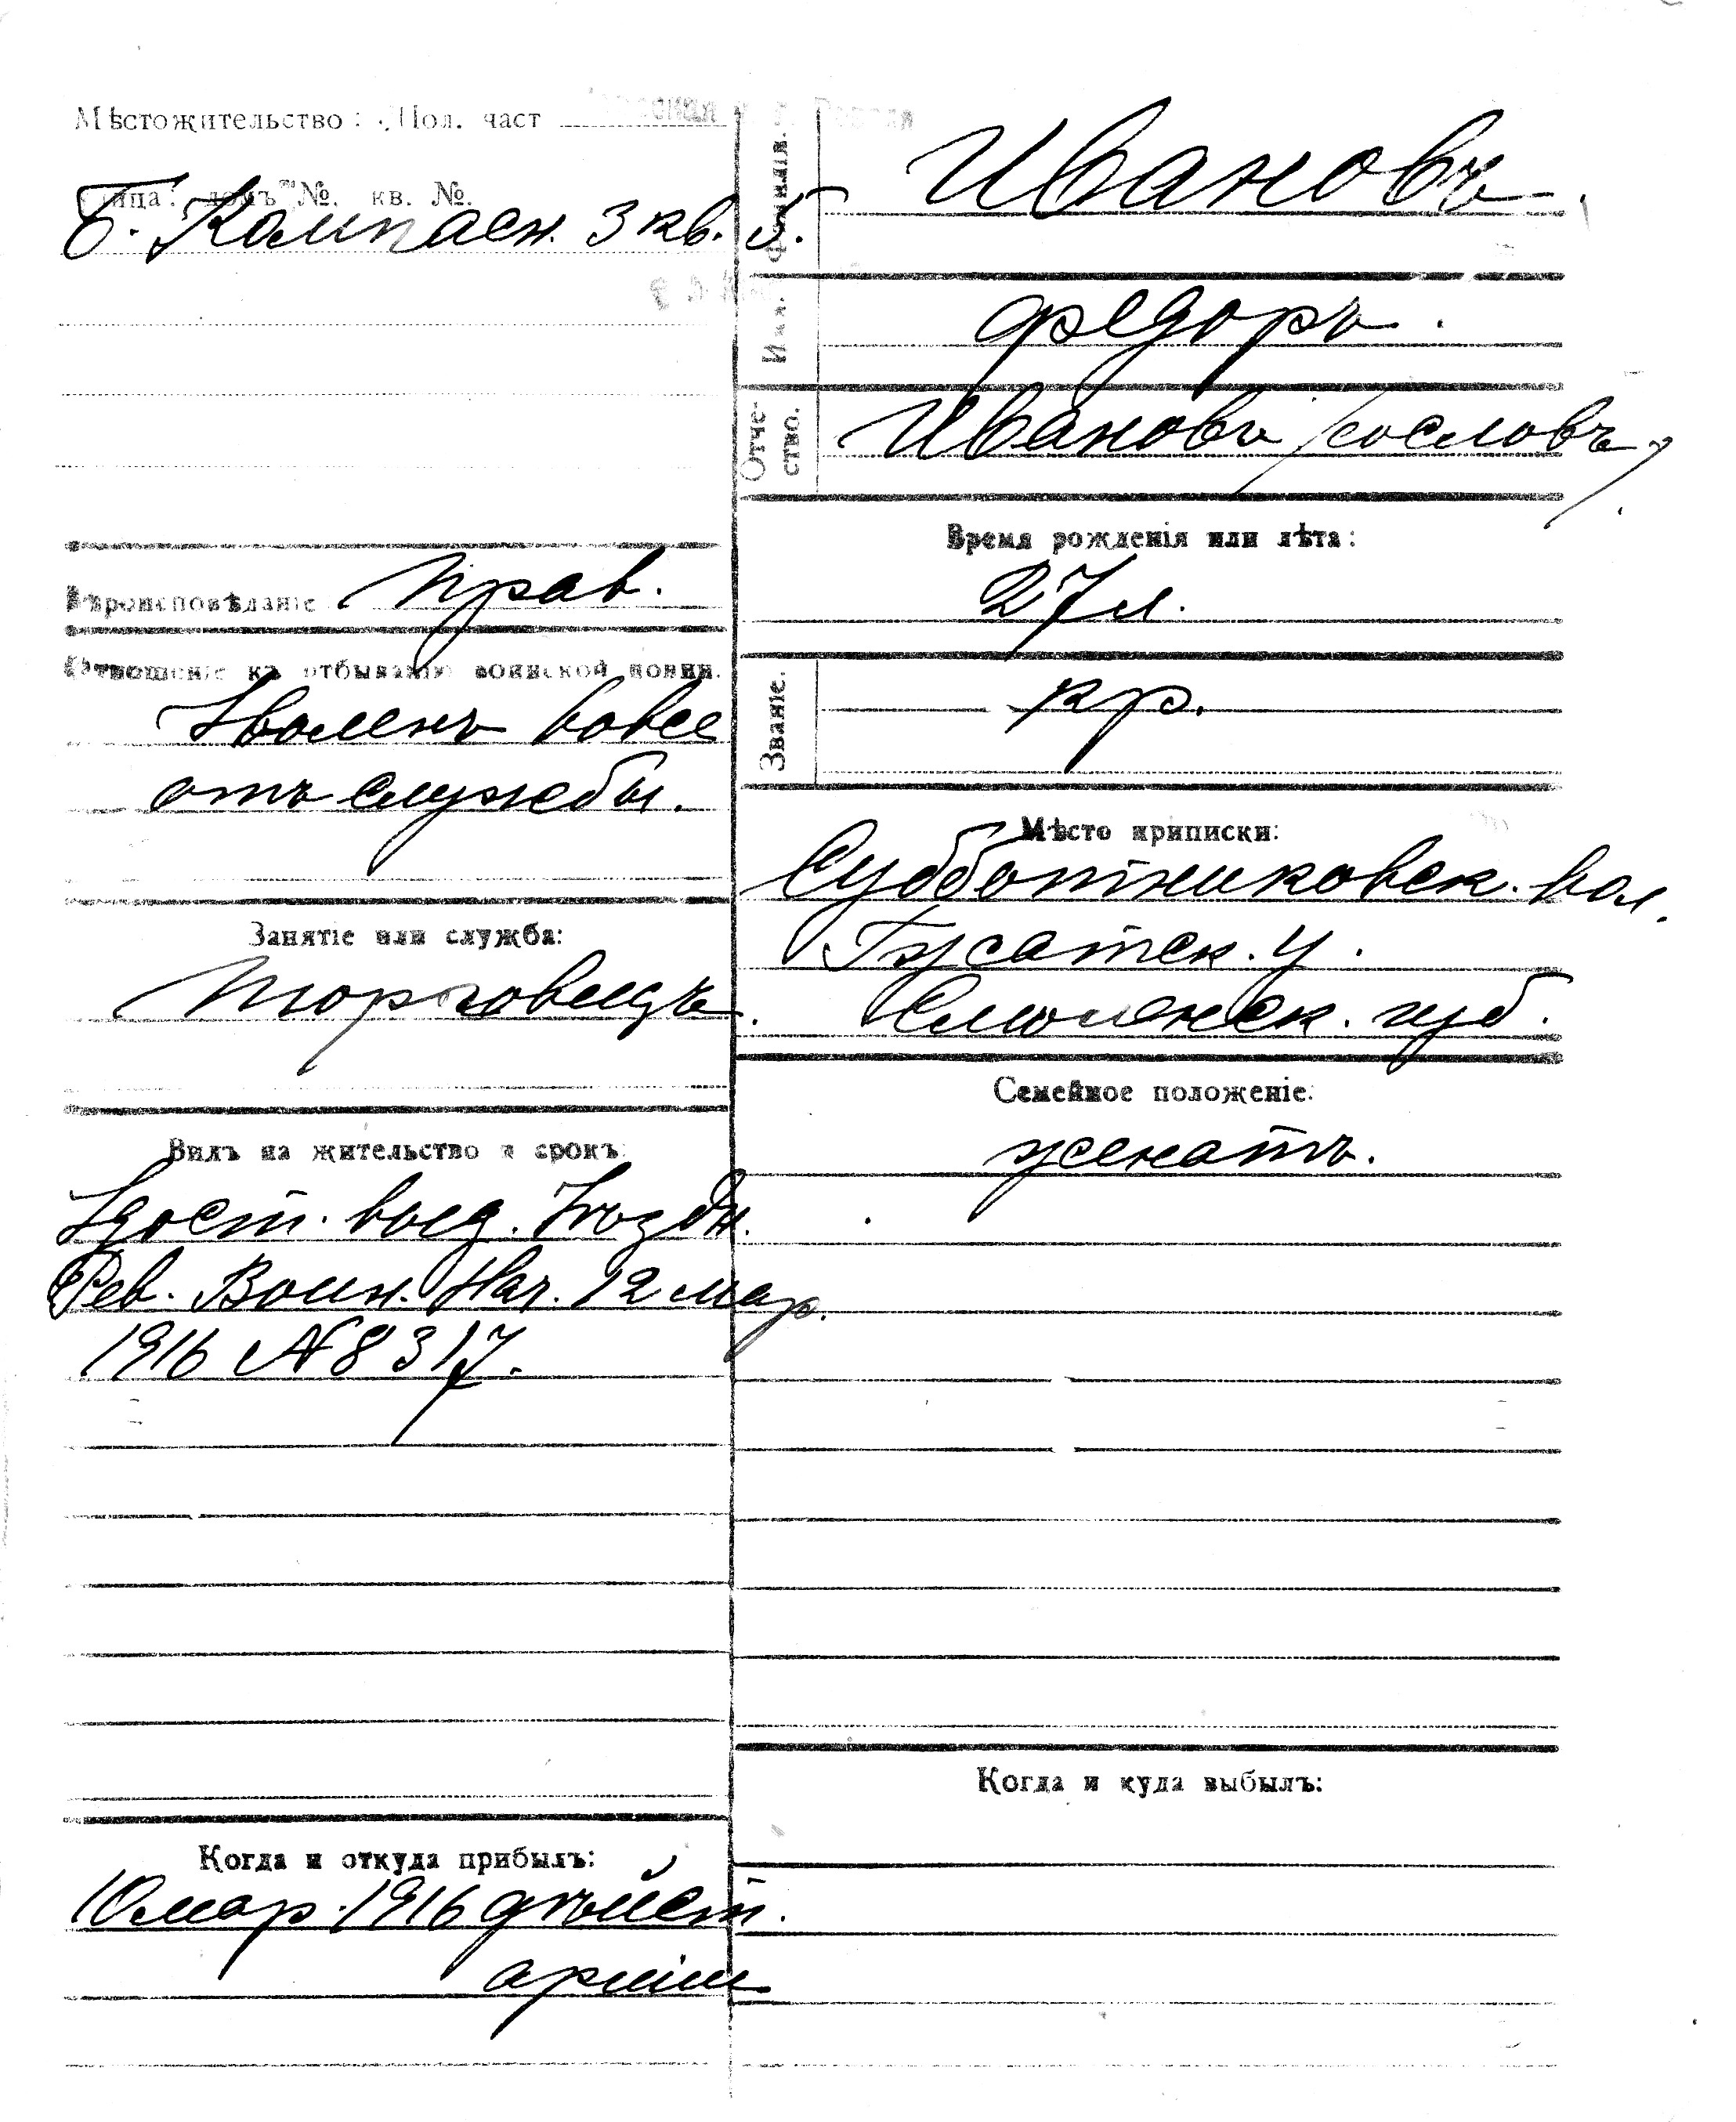 Мѣстожительство: Пол. част
улица: домъ №. кв. №.
Б. Компасн. 3 кв. 5.
Вѣроисповѣданіе Прав.
Отношеніе къ отбыванію воинской повин.
Уволенъ вовсе
отъ службы.
Занятіе или служба:
торговецъ.
Видъ на жительство и срокъ:
Удост. выд.
Рев. Воин. Нач. 12 мар.
1916 № 8317.
Когда и откуда прибылъ:
10 мар. 1916 дѣйст.
арміи
Фамилія.
Ивановъ
Имя.
Федоръ.
Отче-
ство.
Ивановъ
Время рожденія или лѣта:
27 л.
Званіе.
кр.
Мѣсто приписки:
Субботниковск. вол.
Гжатск. у.
Смоленск. губ.
Семейное положеніе:
женатъ.
Когда и куда выбылъ: